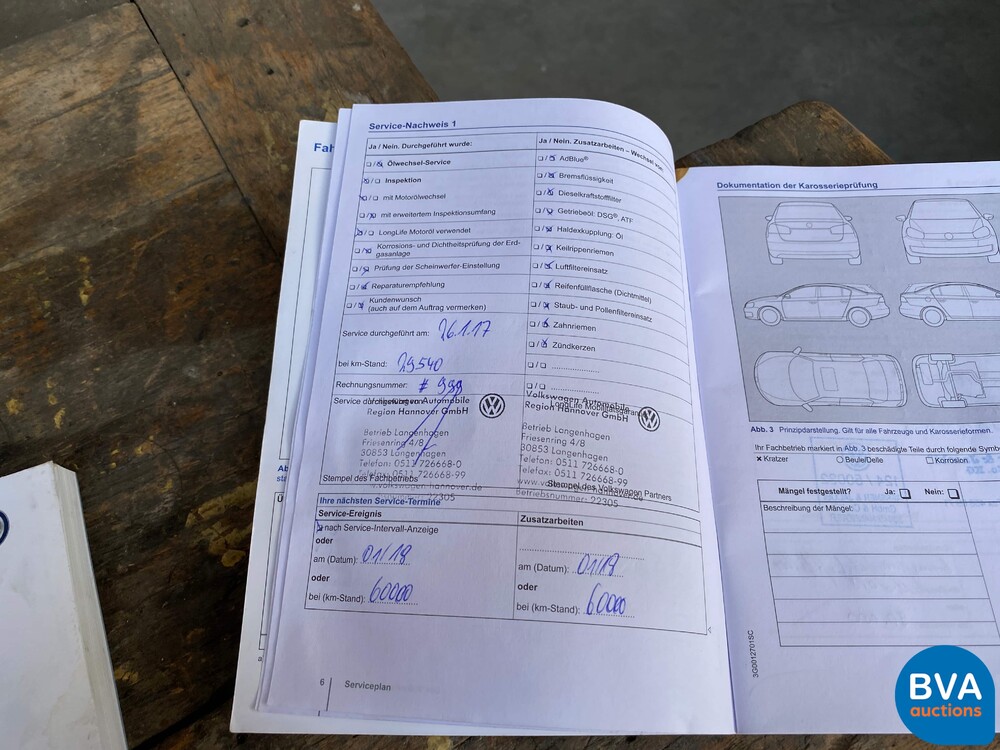 Fah
Service-Nachweis 1
Ja / Nein. Durchgeführt wurde:
Ölwechsel-Service
Inspektion
mit Motorölwechsel
mit erweitertem Inspektionsumfang
LongLife Motoröl verwendet
Korrosions- und Dichtheitsprüfung der Erd-
gasanlage
Prüfung der Scheinwerfer-Einstellung
Reparaturempfehlung
Kundenwunsch
(auch auf dem Auftrag vermerken)
Service durchgeführt am: 26.1.17
bei km-Stand: 29.540
Rechnungsnummer: # 999
Ja / Nein. Zusatzarbeiten – Wechsel von:
AdBlue®
Bremsflüssigkeit
Dieselkraftstofffilter
Getriebeöl: DSG®, ATF
Haldexkupplung: Öl
Keilrippenriemen
Luftfiltereinsatz
Reifenfüllflasche (Dichtmittel)
Staub- und Pollenfiltereinsatz
Zahnriemen
Zündkerzen
Service durchgeführt von:
Volkswagen Automobile
Region Hannover GmbH
Betrieb Langenhagen
Friesenring 4/8
30853 Langenhagen
Telefon: 0511 726668-0
Telefax: 0511 726668-99
www.volkswagen-hannover.de
22305
Stempel des Fachbetriebs
LongLife Mobilitätsgarantie
Volkswagen Automobile
Region Hannover GmbH
Betrieb Langenhagen
Friesenring 4/8
30853 Langenhagen
Telefon: 0511 726668-0
Telefax: 0511 726668-99
Stempel des Volkswagen Partners
Betriebsnummer: 22305
Ihre nächsten Service-Termine
Service-Ereignis
nach Service-Intervall-Anzeige
oder
am (Datum): 01/18
oder
bei (km-Stand): 60000
Zusatzarbeiten
am (Datum): 01/18
oder
bei (km-Stand): 60000
6 Serviceplan
Dokumentation der Karosserieprüfung
Abb. 3 Prinzipdarstellung. Gilt für alle Fahrzeuge und Karosserieformen.
Ihr Fachbetrieb markiert in Abb. 3 beschädigte Teile durch folgende Symbo
x Kratzer
Beule/Delle
Korrosion
Mängel festgestellt? Ja: Nein:
Beschreibung der Mängel:
3G0012701SC
BVA
auctions